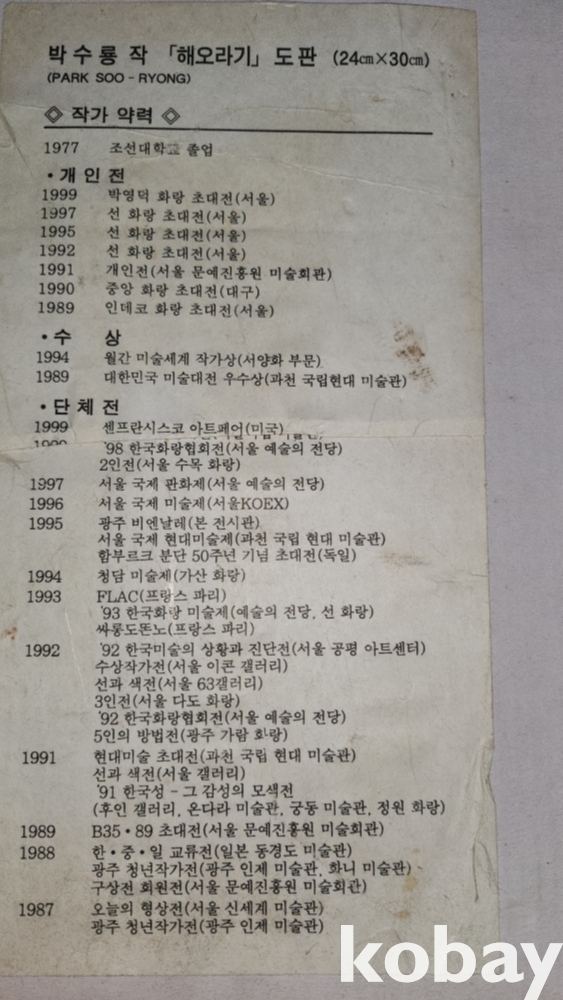 박수룡 작 「해오라기」 도판 (24㎝×30㎝)
(PARK SOO - RYONG)
◇ 작가 약력 ◇
1977 조선대학교 졸업
• 개인전
1999 박영덕 화랑 초대전(서울)
1997 선 화랑 초대전(서울)
1995 선 화랑 초대전(서울)
1992 선 화랑 초대전(서울)
1991 개인전(서울 문예진흥원 미술회관)
1990 중앙 화랑 초대전(대구)
1989 인데코 화랑 초대전(서울)
• 수 상
1994 월간 미술세계 작가상(서양화 부문)
1989 대한민국 미술대전 우수상(과천 국립현대 미술관)
• 단체전
1999 센프란시스코 아트페어(미국)
'98 한국화랑협회전(서울 예술의 전당)
2인전(서울 수목 화랑)
1997 서울 국제 판화제(서울 예술의 전당)
1996 서울 국제 미술제(서울KOEX)
1995 광주 비엔날레(본 전시관)
서울 국제 현대미술제(과천 국립 현대 미술관)
함부르크 분단 50주년 기념 초대전(독일)
1994 청담 미술제(가산 화랑)
1993 FLAC(프랑스 파리)
'93 한국화랑 미술제(예술의 전당, 선 화랑)
싸롱도똔노(프랑스 파리)
1992 '92 한국미술의 상황과 진단전(서울 공평 아트센터)
수상작가전(서울 이콘 갤러리)
선과 색전(서울 63갤러리)
3인전(서울 다도 화랑)
'92 한국화랑협회전(서울 예술의 전당)
5인의 방법전(광주 가람 화랑)
1991 현대미술 초대전(과천 국립 현대 미술관)
선과 색전(서울 갤러리)
'91 한국성 - 그 감성의 모색전
(후인 갤러리, 온다라 미술관, 궁동 미술관, 정원 화랑)
1989 B35 • 89 초대전(서울 문예진흥원 미술회관)
1988 한 • 중 • 일 교류전(일본 동경도 미술관)
광주 청년작가전(광주 인제 미술관, 화니 미술관)
구상전 회원전(서울 문예진흥원 미술회관)
1987 오늘의 형상전(서울 신세계 미술관)
광주 청년작가전(광주 인제 미술관)
kobay